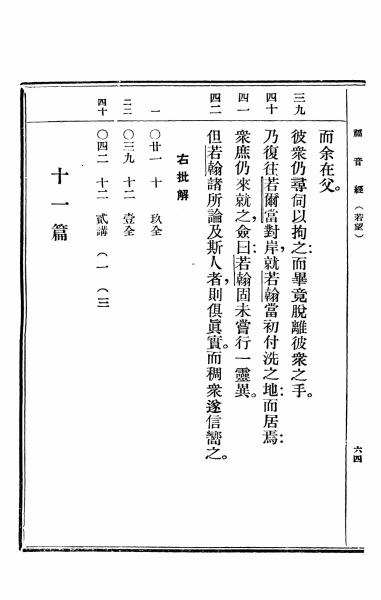 福音經（若望）
六四
而余在父。
三九 彼衆仍尋伺以拘之:而畢竟脱離彼衆之手。
四十 乃復往若爾當對岸,就若翰當初付洗之地:而居焉:
四一 衆庶仍來就之,僉曰:若翰固未嘗行一靈異。
四二 但若翰諸所論及斯人者,則俱眞實。而稠衆遂信嚮之。
右批解
一 〇廿一 十 玖全
二二 〇三九 十二 壹全
四十 〇四二 十二 貳講 (一) (三
十一篇